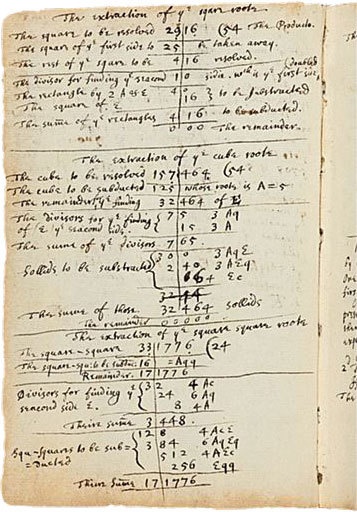 The extraction of yͤ sqare roote
The square to be resolved 29|16 (54 The Producte.
The sqare of yͤ first side to 25 be taken away.
The rest of yͤ square to be 4|16 resolved.
The divisor for finding yͤ seacond 10 side. wᶜʰ is yͤ first side, doubled
The rectangle by 2 A as E 4 0
The square of E 16 } to be substracted
The sume of yͤ rectangles 4 16 to be subducted.
0 0 0 The remainder.
The extraction of yͤ cube roote
The cube to be resolved 157|464 (54
The cube to be subducted 125 whose roote is A=5
The remainder yͤ finding 32 464 of E
The divisors for yͤ finding { 7 5 3 Aq
of E yͤ seacond side { 15 3 A
The sume of yͤ divisors 7 65.
3 0 0 3 AqE
Sollids to be substracted { 2 40 3 AEq
64 Ec
32 44
The sume of those 32 464 sollids
The remainder 00 000
The extraction of yͤ square square roote
The square-square 33|1776 (24
The square-sqa: to be subtra: 16 =Aqq
Remainder. 17 1776
Divisors for finding yͤ { 3 2 4 Ac
seacond side E. { 24 6 Aq
8 4 A
Their sume 3 448.
12 8 4 AcE
Squ-squars to be sub= { 3 84 6 AqEq
=ducted 512 4 AEc
256 Eqq
Their Sume 17 1776